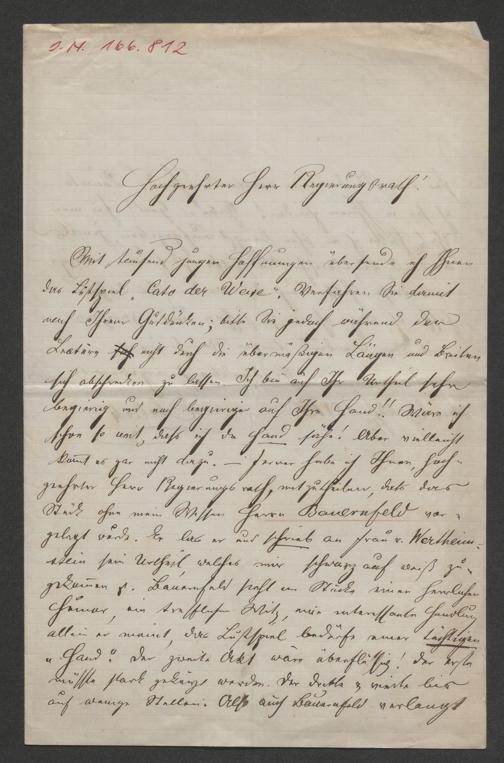 J. N. 166.812
Hochgeehrter Herr Regierungsrath!
Mit tausend jungen Hoffnungen übersende ich Ihnen
das Lustspiel „Cato der Weise". Verfahren Sie damit
nach Ihrem Gutdünken; bitte Sie jedoch während der
Lectüre nicht durch die übermäßigen Längen und Breiten
sich abschrecken zu lassen. Ich bin auf Ihr Urtheil sehr
begierig und noch begieriger auf Ihre Hand!! Wäre ich
schon so weit, daß ich die Hand sähe! Aber vielleicht
kommt es gar nicht dazu. — Ferner habe ich Ihnen, hoch-
geehrter Herr Regierungsrath, mitzutheilen, daß das
Stück ohne mein Wissen Herrn Bauernfeld vor-
gelegt wurde. Er las es und schrieb an Frau v. Wertheim-
stein sein Urtheil welches mir schwarz auf weiß zu-
gekommen. Bauernfeld sieht im Stücke einen herrlichen
Humor, ein trefflichen Witz, eine interessante Handlung,
allein er meint, das Lustspiel bedürfe einer tüchtigen
„Hand". Der zweite Akt wäre überflüssig! Der erste
müßte stark gekürzt werden. Der dritte u vierte bis
auf wenige Stellen. Also auch Bauernfeld verlangt